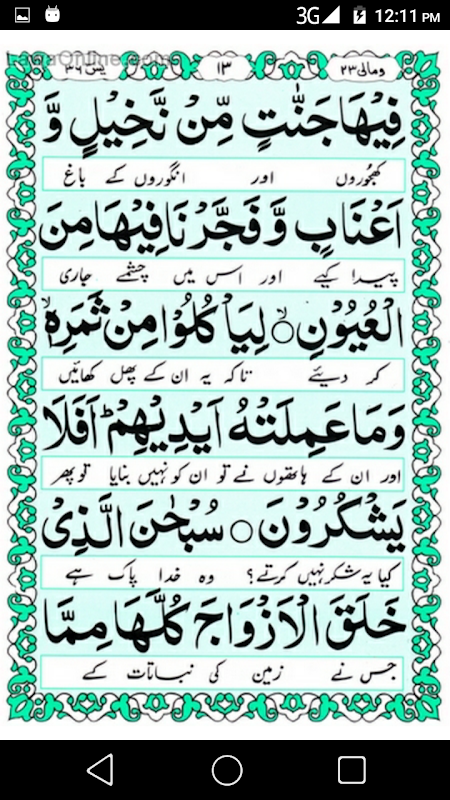 3G 12:11 PM
ومالی ۲۳ ۱۳ یٰس ۳۶
فِيْهَا جَنّٰتٍ مِّنْ نَّخِيْلٍ وَّ
کھجوروں اور انگوروں کے باغ
اَعْنَابٍ وَّ فَجَّرْنَا فِيْهَا مِنَ
پیدا کیے اور اس میں چشمے جاری
الْعُيُوْنِ ۙ لِيَاْكُلُوْا مِنْ ثَمَرِهٖ ۙ
کر دیئے تاکہ یہ ان کے پھل کھائیں
وَمَا عَمِلَتْهُ اَيْدِيْهِمْ ؕ اَفَلَا
اور ان کے ہاتھوں نے تو ان کو نہیں بنایا تو پھر
يَشْكُرُوْنَ ○ سُبْحٰنَ الَّذِيْ
کیا یہ شکر نہیں کرتے؟ وہ خدا پاک ہے
خَلَقَ الْاَزْوَاجَ كُلَّهَا مِمَّا
جس نے زمین کی نباتات کے